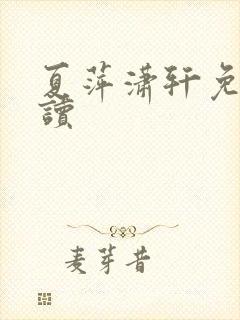 夏萍潇轩免
读
麦芽昔